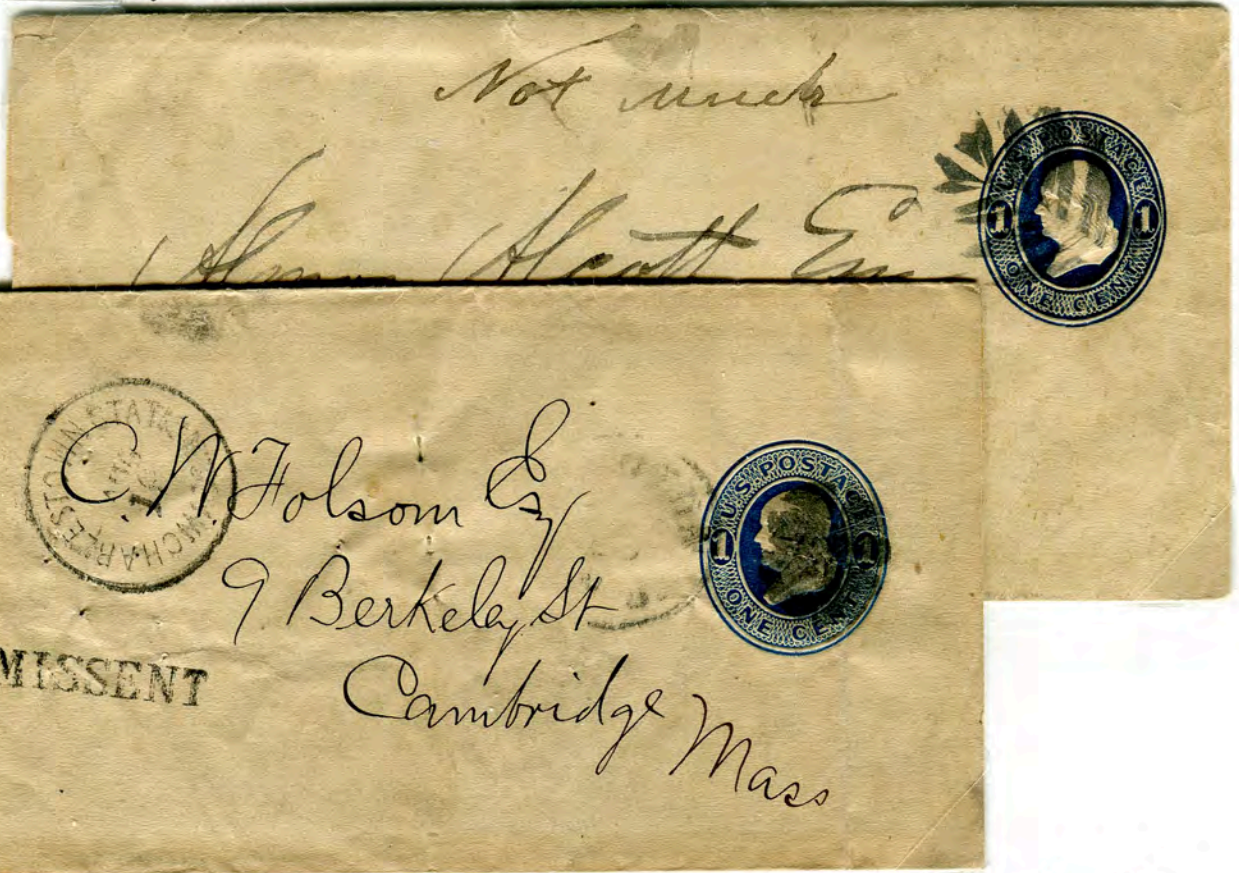 Not much
Alcott Esq
U.S. POSTAGE
1 1
ONE CENT
CHARLESTOWN STATION
C. W Folsom Esq
9 Berkeley St
Cambridge Mass
U.S. POSTAGE
1 1
ONE CENT
MISSENT